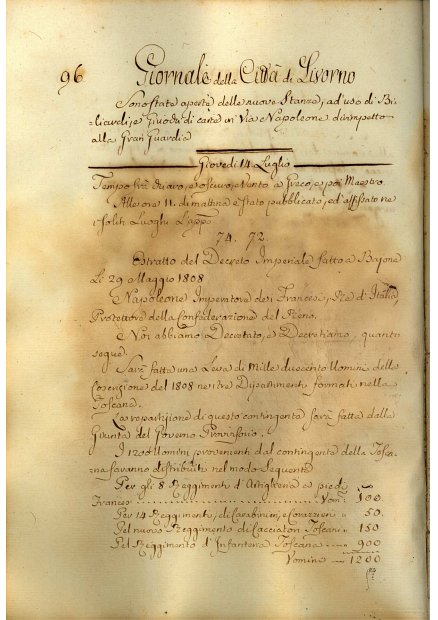 96
Giornale della Città di Livorno
Sono state aperte delle nuove Stanze, ad'uso di Bi-
liardi, e Giuochi di carte in Via Napoleone dirimpetto
alla Gran Guardia
Giovedì 14 Luglio
Tempo tra chiaro, e oscuro, e Vento a Greco, e poi Maestro.
Alle ore 11. di mattina è stato pubblicato, ed affisso ne
soliti Luoghi
74. 72.
Estratto del Decreto Imperiale fatto a Bajona
Li 29 Maggio 1808
Napoleone Imperatore dei Francesi, Re d'Italia,
Protettore della Confederazione del Reno.
Noi abbiamo Decretato, e Decretiamo, quanto
segue.
Sarà fatta una Leva di Mille duecento Uomini della
Coscrizione del 1808 ne i tre Dipartimenti formati nella
Toscana.
La repartizione di questo contingente sarà fatta dalla
Giunta del Governo Provvisorio.
I 1200 Uomini provenienti dal contingente della Tosca-
na saranno distribuiti nel modo Seguente
Per gli 8 Reggimenti d'Artiglieria a piedi
Francesi Uom: 100
Per 14 Reggimenti, di Carabinieri, e Corazzieri 50.
Pel nuovo Reggimento di Cacciatori Toscani 150
Pel Reggimento d'Infanteria Toscana 900
Uomini 1200